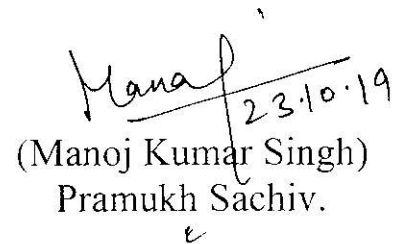 Manoj
23.10.19
(Manoj Kumar Singh)
Pramukh Sachiv.